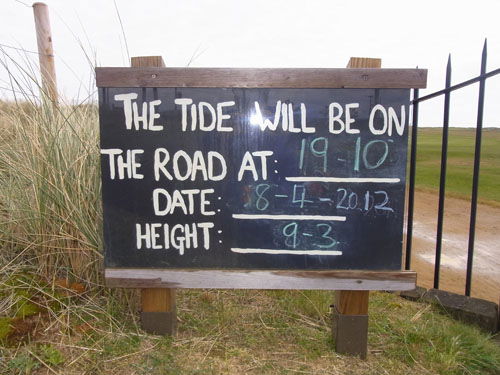 THE TIDE WILL BE ON
THE ROAD AT: 19-10
DATE: 8-4-2012
HEIGHT: 9-3